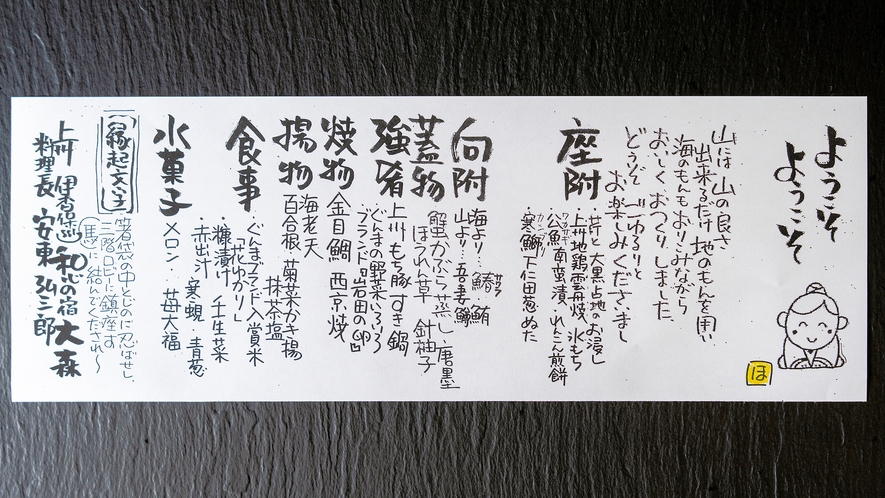 ようこそ
ようこそ
ほ
山には 山の良さ
出来るだけ 地のもんを用い
海のもんもおりこみながら
おいしく、おつくりしました。
どうぞ ごゆるりと
お楽しみくださいまし
座附
・芹と大黒占地のお浸し
・上州地鶏雲丹焼 氷もち
ワカサギ
・公魚南蛮漬・れんこん煎餅
カンブリ
・寒鰤 下仁田葱ぬた
向附
海より… 鰆 鮪
サワラ
山より… 吾妻鱒
蓋物
蟹かぶら蒸し 唐墨
ほうれん草 針柚子
強肴
上州もち豚すき鍋
ぐんまの野菜いろいろ
ブランド卵 岩田の卵
焼物
金目鯛 西京焼
揚物
海老天
百合根 菊菜かき揚
抹茶塩
食事
・ぐんまブランド入賞米
「花ゆかり」
・糠漬け 壬生菜
・赤出汁 寒蜆 青葱
水菓子
メロン ・ 苺大福
縁起文宝
箸袋の中ものに忍ばせし
三階ロビーに鎮座す
馬に結んでくだされ〜
上州 伊香保 和心の宿 大森
料理長 安東 弘三郎